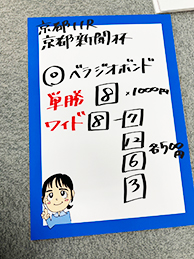 京都11R
京都新聞杯
◎ベラジオボンド
単勝 8 ×1000円
ワイド 8-7
12 各500円
6
3